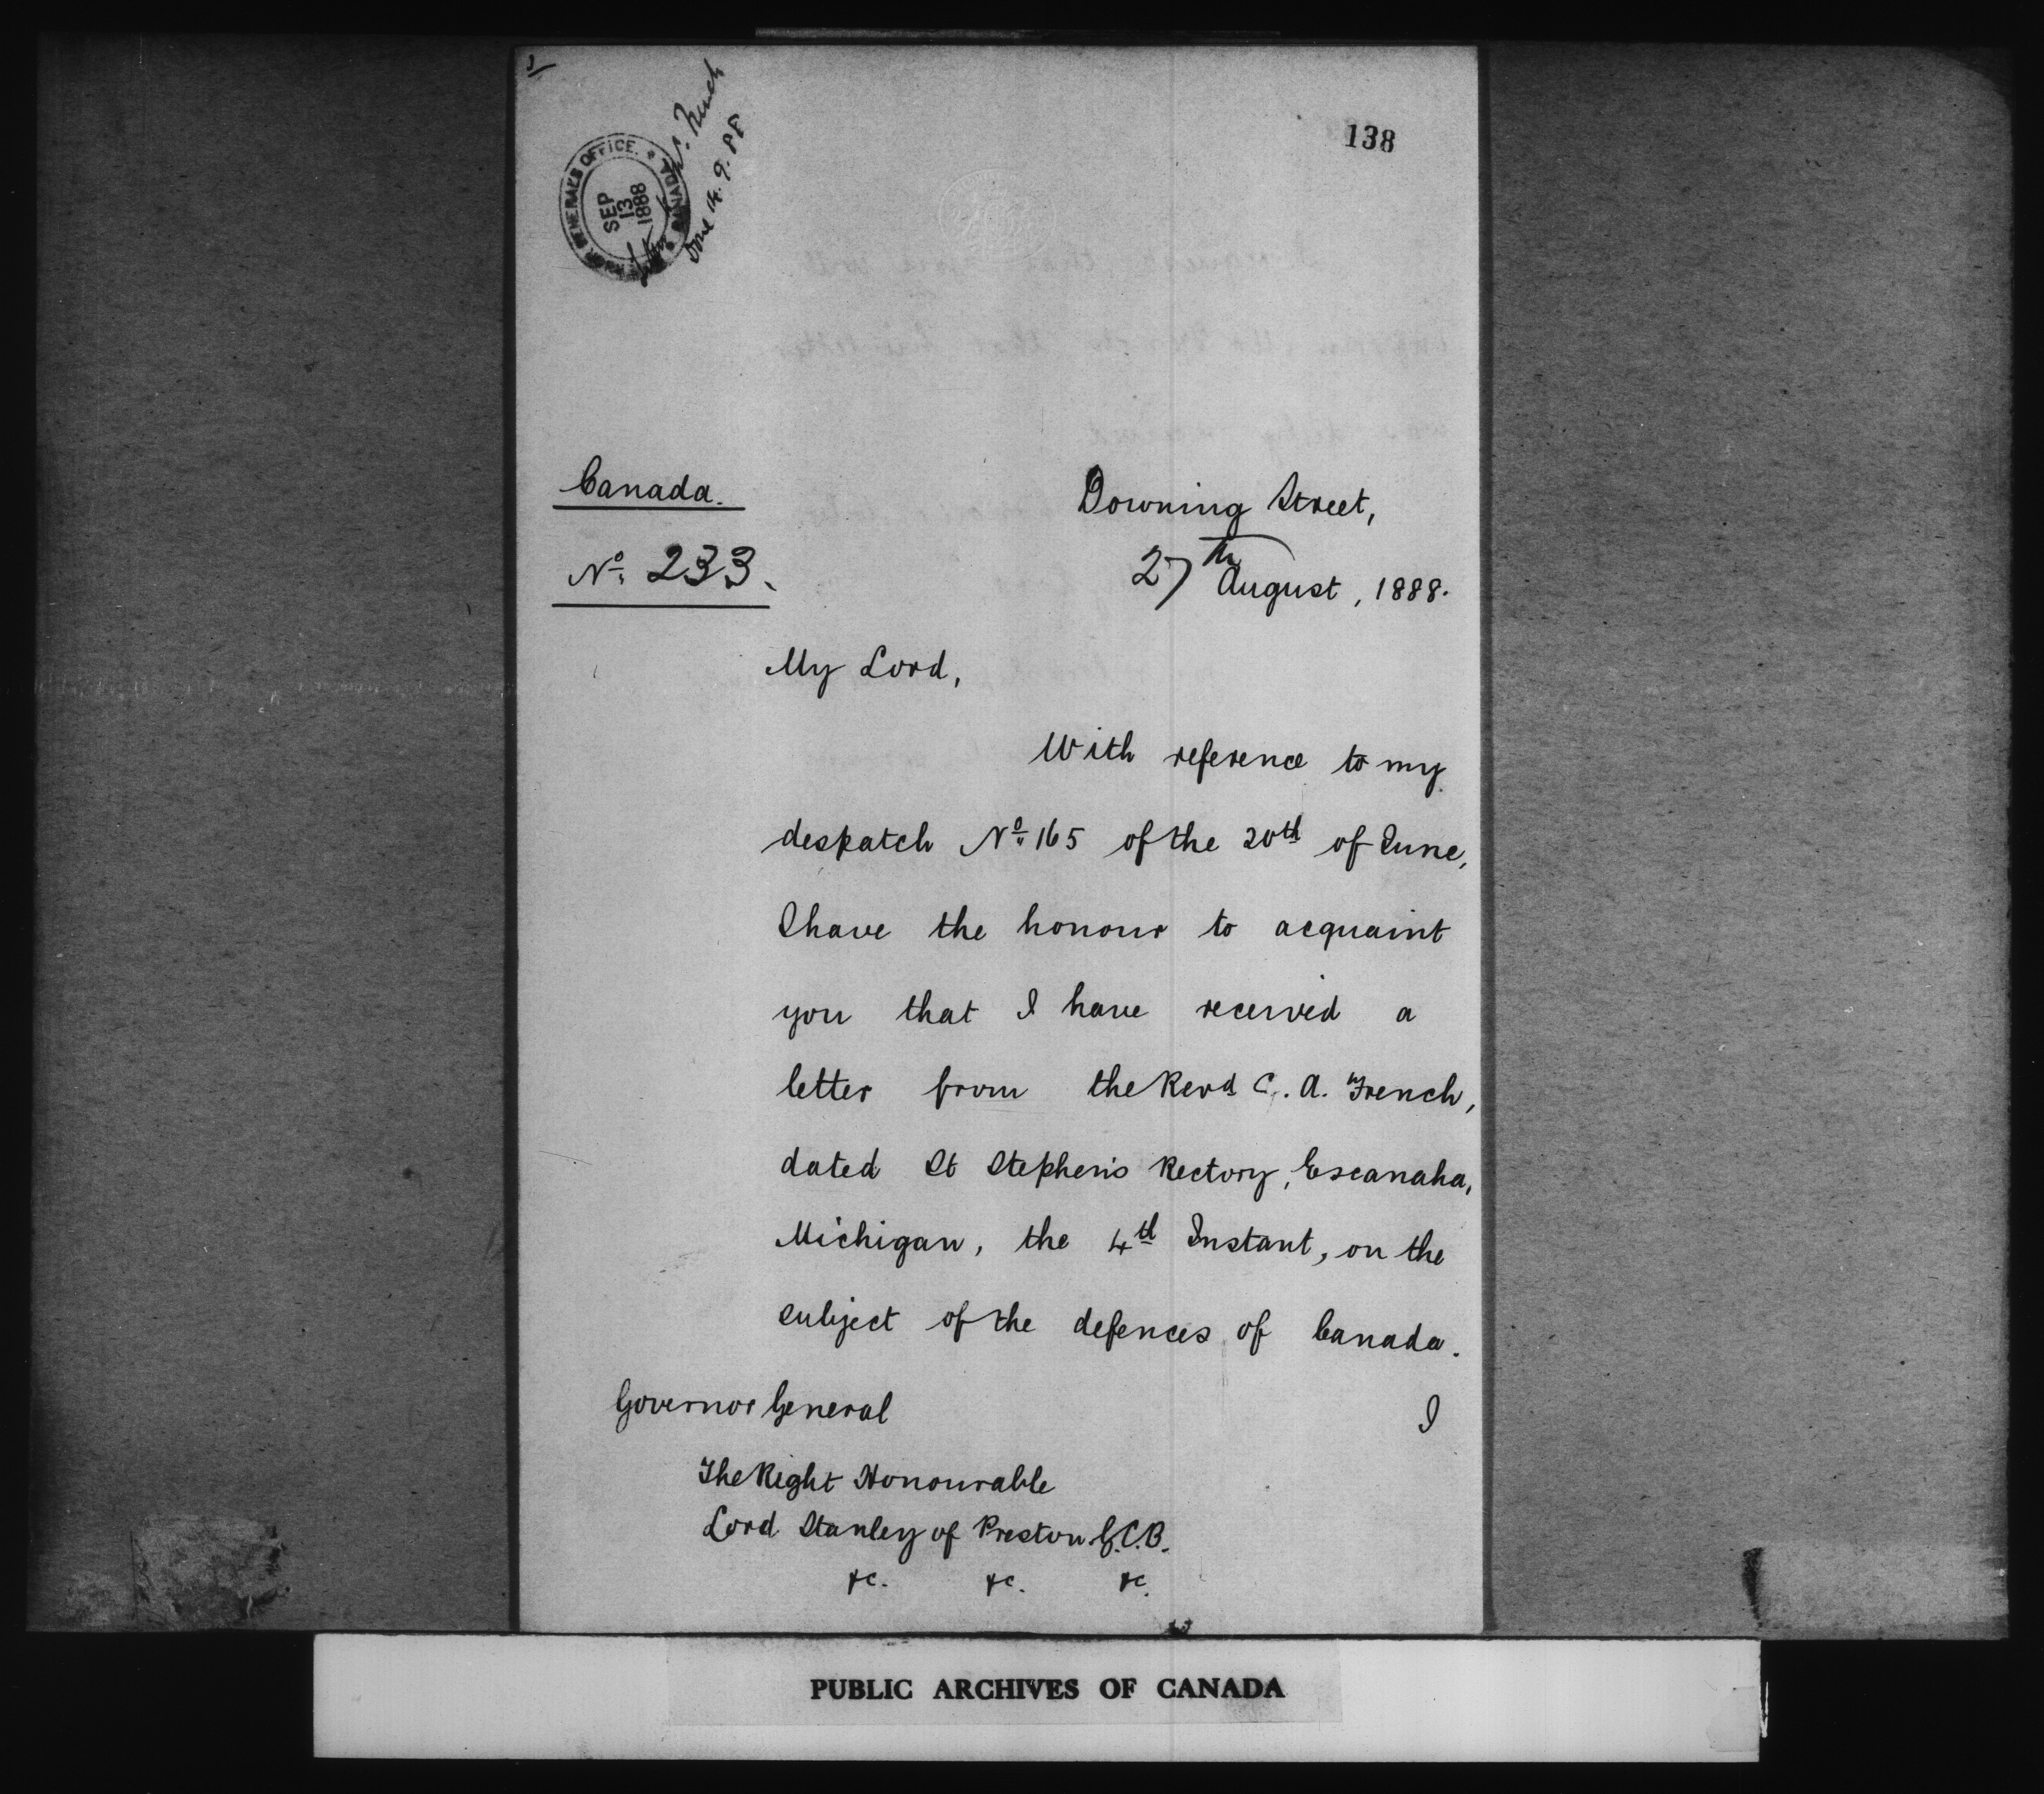 138
GOVERNOR GENERAL'S OFFICE. * CANADA *
SEP
13
1888
French
Done 14.9.88
Canada.
No. 233.
Downing Street,
27th August, 1888.
My Lord,
With reference to my
despatch No. 165 of the 20th of June,
I have the honour to acquaint
you that I have received a
letter from the Revd C. A. French,
dated St Stephen's Rectory, Escanaha,
Michigan, the 4th Instant, on the
subject of the defences of Canada.
Governor General
I
The Right Honourable
Lord Stanley of Preston G.C.B.
&c. &c. &c.
PUBLIC ARCHIVES OF CANADA